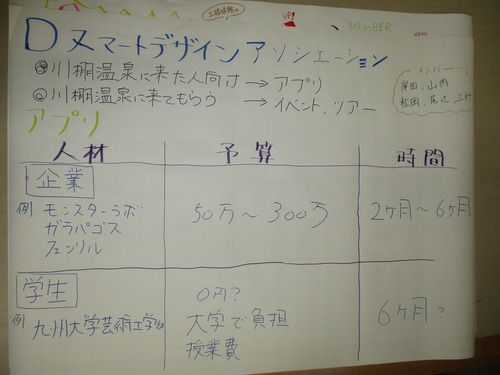 UP!
MEMBER
Dスマートデザインアソシエーション
川棚温泉に来た人向け→アプリ
◎川棚温泉に来てもらう→イベント、ツアー
メンバー
山内
松岡、尾辻、三村
アプリ
人材 予算 時間
企業
例 モンスターラボ
ガラパゴス
フェンリル
50万〜300万
2ヶ月〜6ヶ月
学生
例 九州大学芸術工学
0円?
大学で負担
授業費
6ヶ月?